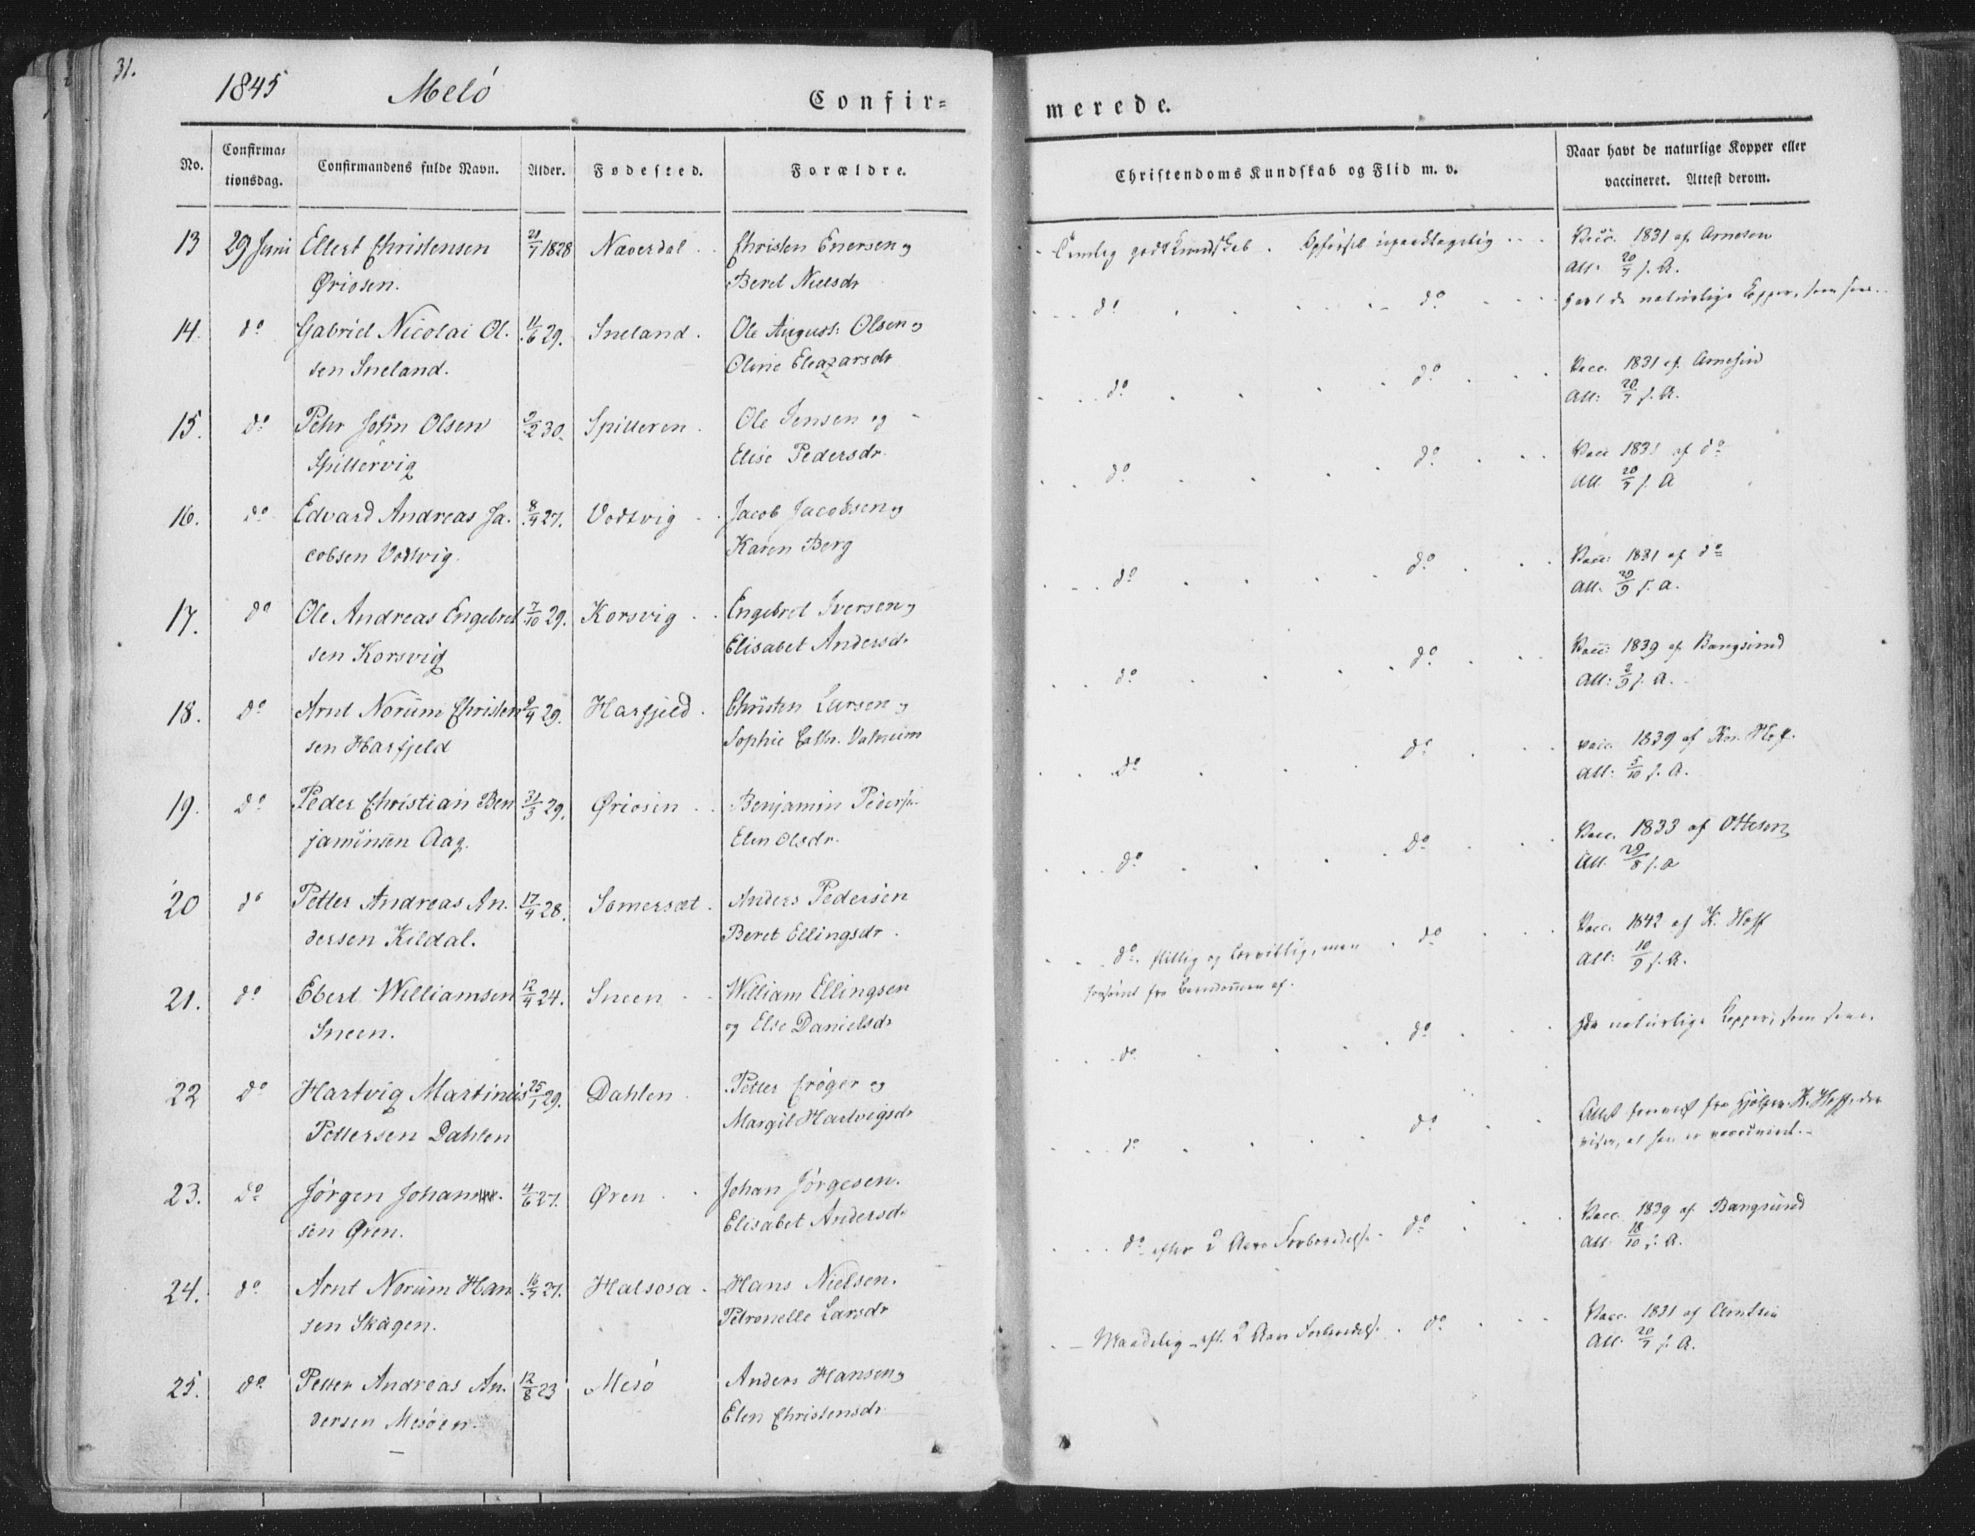 31.
1845 Melö
Confir=
merede.
No.
Confirma=
tionsdag.
Confirmandens fulde Navn.
Alder.
Fødested.
Forældre.
Christendoms Kundskab og Flid m. v.
Naar havt de naturlige Kopper eller
vaccineret. Attest derom.
13 29 Juni Ellert Christensen 21/7 1828 Næverdal Christen Enersen og
Øriosen. Beret Nielsdr
Temlig godt Kundskab. Opførsel upaaklagelig
Vacc. 1831 af Arnesen
Att. 20/7 s. A.
14. do Gabriel Nicolai Ol. 11/6 29. Sneland. Ole August. Olsen og
sen Sneland. Oline Eleazarsdr
do do havt de naturlige Kopper, som sees.
15. do Pehr John Olsen 9/2 30. Spilleren. Ole Jensen og
Spillervig Elise Pedersdr.
do do Vacc. 1831 af Arnesen
Att: 20/7 s. A.
16. do Edvard Andreas Ja. 8/4 27. Vodvig Jacob Jacobsen og
cobsen Vodvig. Karen Berg
do do Vacc 1831 af do
Att. 20/7 s. A
17. do Ole Andreas Engebret 7/10 29. Korsvig Engebret Iversen og
sen Korsvig Elisabet Andersdr
do do Vacc: 1831 af do
Att. s. A.
18. do Arnt Norum Christen 9/4 29. Harfjeld. Christen Larsen og
sen Harfjeld Sophie Cath. Valneim
do do Vacc: 1839 af Bangsund
Att: 2/9 s. A.
19. do Peder Christian Ben 31/3 29. Øriosen Benjamin Peders
jaminsen Aag. Elen Olsdr.
do do vacc. 1839 af K. Hoff.
Att: 5/10 s. A.
20 do Petter Andreas An. 17/4 28. Somersæt. Anders Pedersen
dersen Kildal. Beret Ellingsdr.
do do Vacc. 1833 af Ottesen
Att. 29/8 s. A
21. do Ebert Williamsen 12/4 24. Sneen William Ellingsen
Sneen. og Else Danielsdr
do. flittig og lærvillig, men do
forsømt fra Barndommen af.
Vacc. 1842 af K. Hoff
Att: 10/9 s. A.
22 do Hartvig Martinus 25/1 29. Dahlen Petter Crøger og
Pettersen Dahlen Margit Hartvigsdr
do do de naturlige Kopper, som sees.
23. do Jörgen Johan. 4/6 27. Øren Johan Jörgesen.
sen Øren. Elisabet Andersdr
do do Attest fra Hjelper K. Hoff, der
viser, at han er vaccineret.
24. do Arnt Norum Han 16/7 27. Halsosa Hans Nielsen.
sen Skagen. Petronelle Larsdr
do efter 2 Aars Forberedelse. do
Vacc. 1839 af Bangsund
Att. 18/10 s. A.
25. do Petter Andreas An. 12/8 23 Mesö Anders Hansen og
dersen Mesöen. Elen Christensdr
Maadelig eft. 2 Aars Forberedelse. do
Vacc. 1831 af Arntsen
Att. 20/7 s. A.